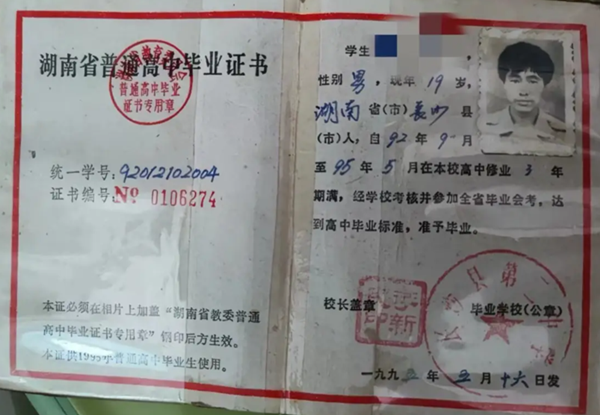 湖南省普通高中毕业证书
普通高中毕业
证书专用章
统一学号:92012102004
证书编号:№ 0106274
本证必须在相片上加盖“湖南省教委普通
高中毕业证书专用章”钢印后方生效。
本证供1995年普通高中毕业生使用。
学生
性别 男,现年 19 岁,
湖南 省(市) 县
(市)人,自 92 年 9 月
至 95 年 5 月在本校高中修业 3 年
期满,经学校考核并参加全省毕业会考,达
到高中毕业标准,准予毕业。
校长盖章
毕业学校(公章)
一九九五年 五 月 十六 日发